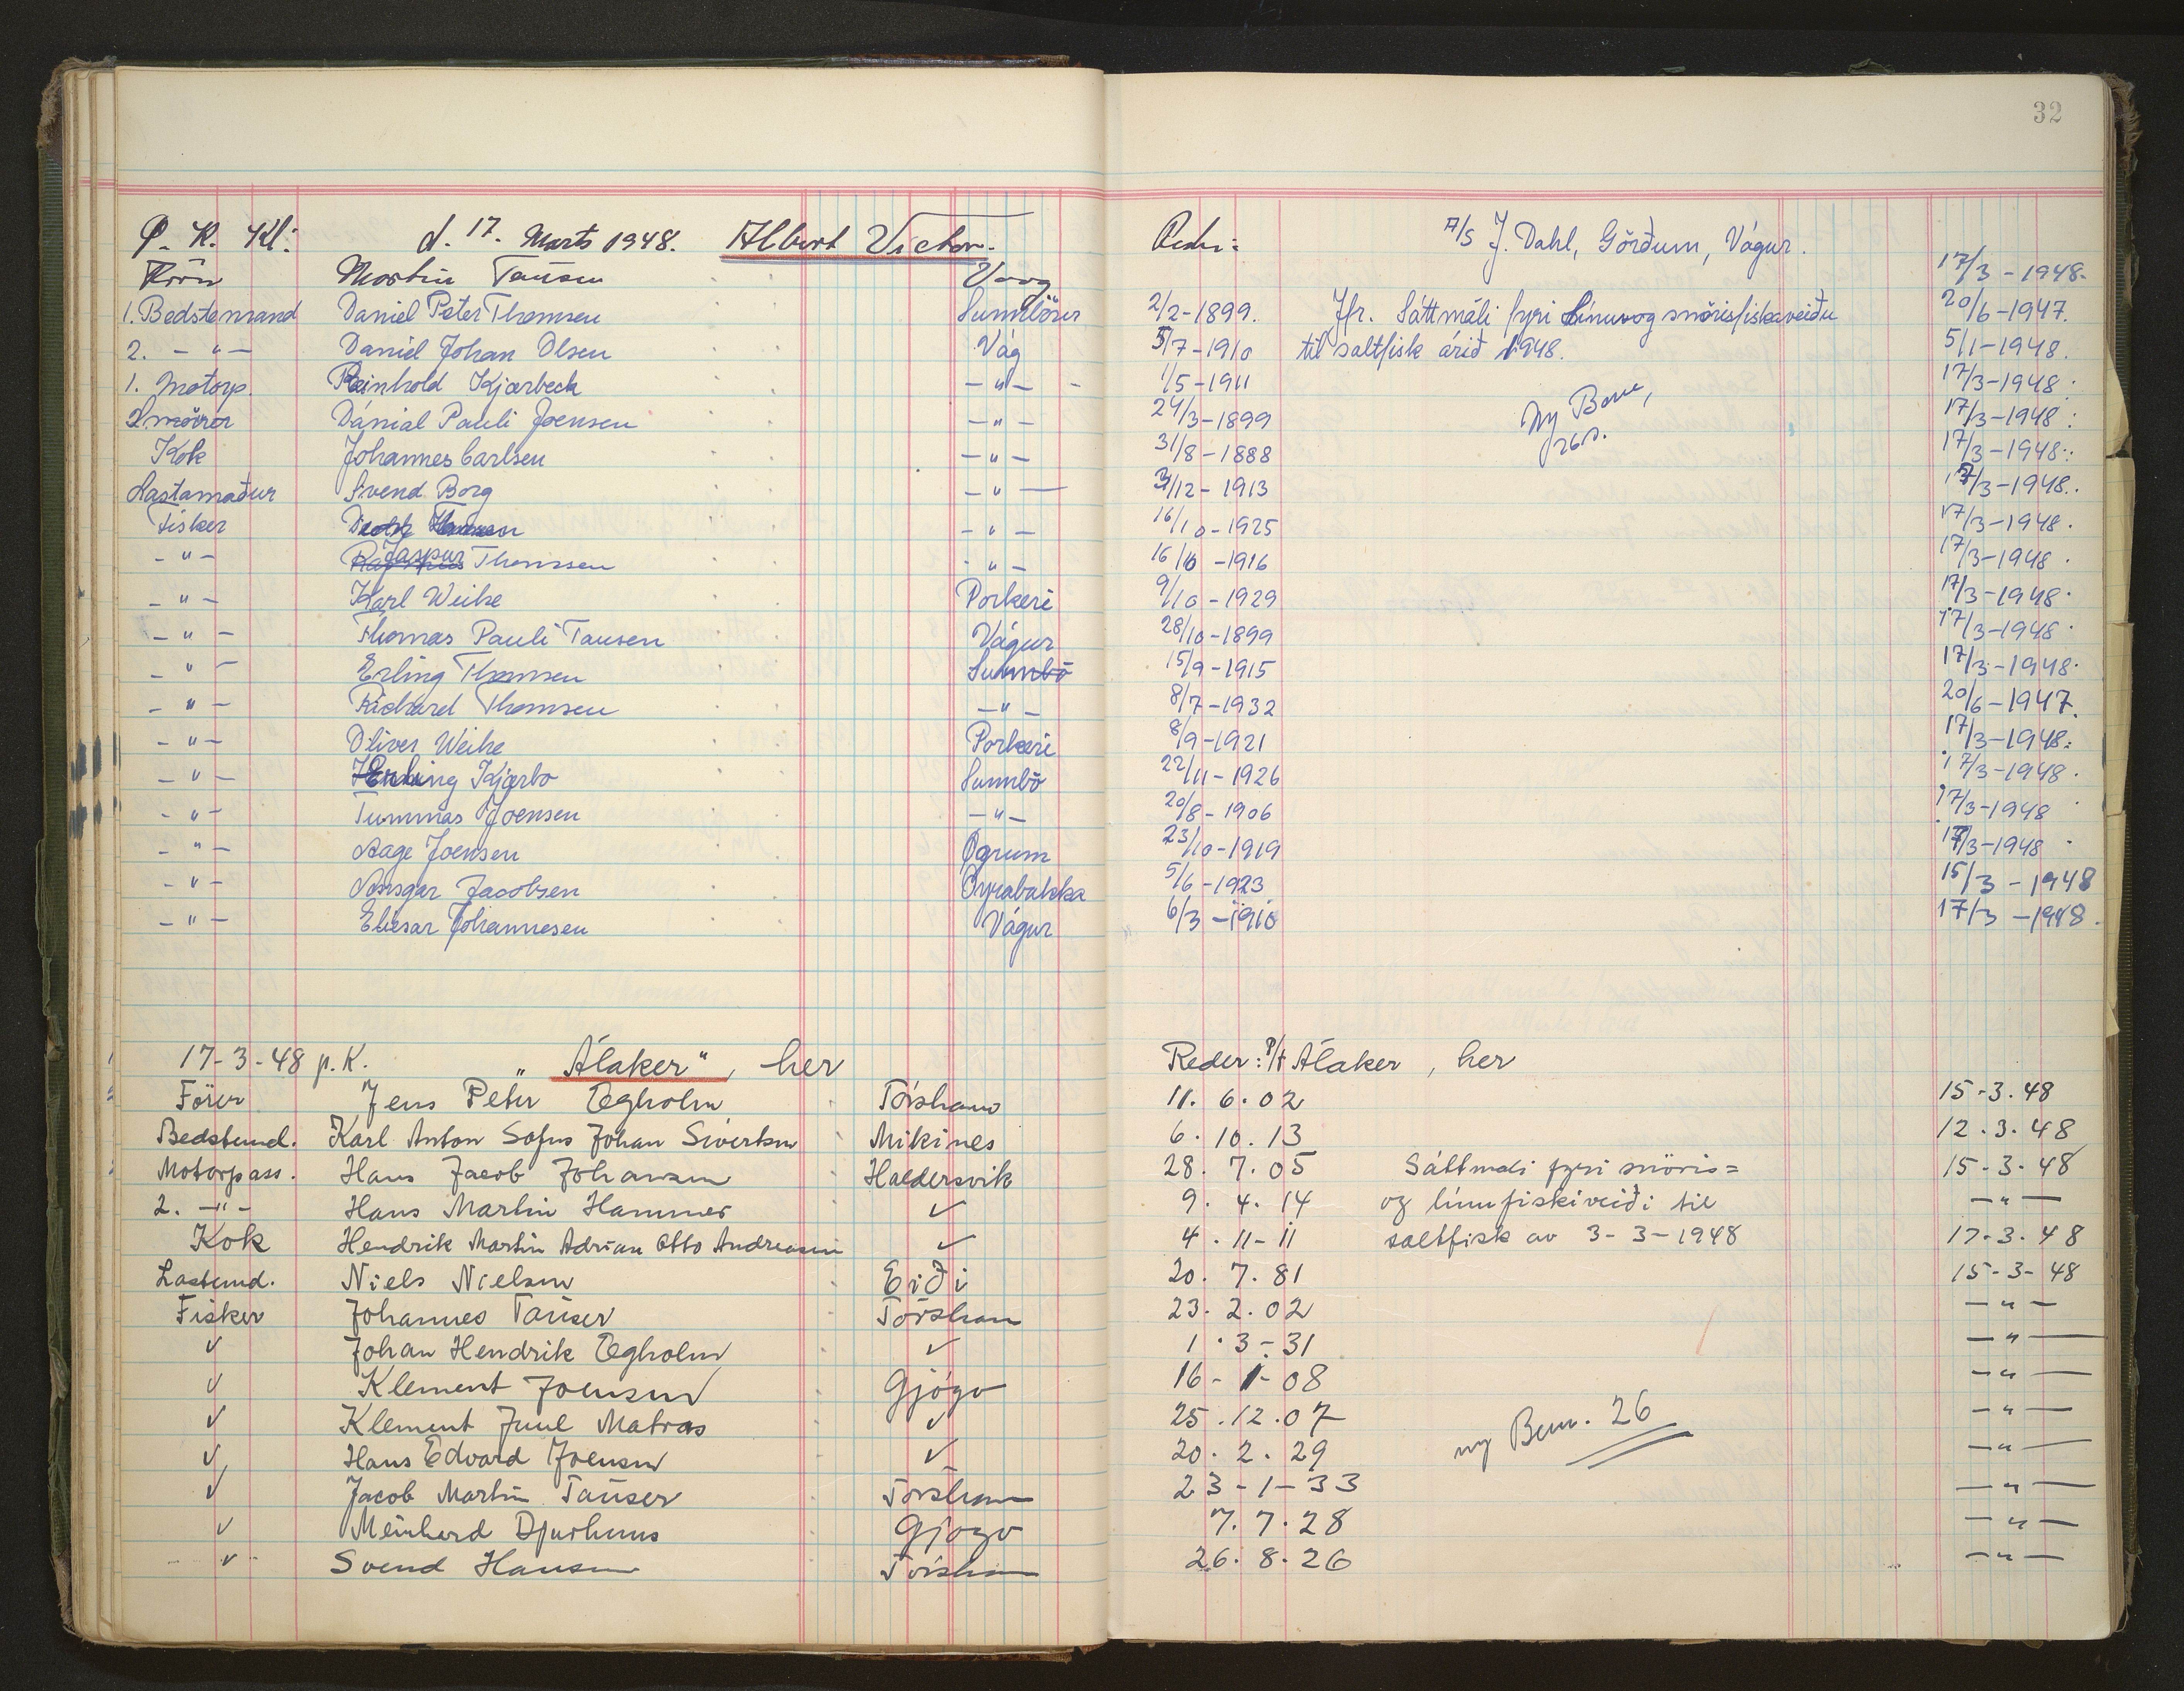 32
P. K. Kl: d. 17. Marts 1948. Albert Victor. Rederi: A/S J. Dahl, Görðum, Vágur.
Martin Tausen Vaag 17/3-1948.
1. Bedstemand Daniel Peter Thomsen Sunnbönur 2/2-1899. Jfr. Sáttmáli fyri Línu og snörisfiskaveiðu 20/6-1947.
2. -"- Daniel Johan Olsen Vág 5/7-1910 til saltfisk árið 1948. 5/1-1948.
1. Motorp. Reinhold Kjærbeck -"- 1/5-1911 17/3-1948.
Smörer Dánial Pauli Joensen -"- 24/3-1899 Ny Bem, 26 s. 17/3-1948.
Kok Johannes Carlsen -"- 31/8-1888 17/3-1948.
Lastamaður Svend Borg -"- 3/12-1913 17/3-1948.
Fisker -"- 16/10-1925 17/3-1948.
-"- Jaspur Thomsen -"- 16/10-1916 17/3-1948.
-"- Karl Weihe Porkeri 9/10-1929 17/3-1948.
-"- Thomas Pauli Tausen Vágur 28/10-1899 17/3-1948.
-"- Erling Thomsen Sunnbö 15/9-1915 17/3-1948.
-"- Richard Thomsen -"- 8/7-1932 20/6-1947.
-"- Oliver Weihe Porkeri 8/9-1921 17/3-1948.
-"- Kjærbo Sunnbö 22/11-1926 17/3-1948.
-"- Tummas Joensen -"- 20/8-1906 17/3-1948
-"- Aage Joensen Øgrum 23/10-1919 17/3-1948
-"- Ansgar Jacobsen Oyrabakka 5/6-1923 15/3-1948
-"- Eliesar Johannesen Vágur 6/3-1910 17/3-1948.
17-3-48 p.K. „Álaker", her Reder: P/f Álaker, her
Förer Jens Peter Egholm Tórshavn 11. 6. 02 15-3.48
Bedstemd. Karl Anton Sofus Johan Sivertsen Mikines 6. 10. 13 12.3.48
Motorpass. Hans Jacob Johansen Haldersvik 28. 7. 05 Sáttmali fyri snöris= 15-3-48
2. -"- Hans Martin Hammer ✓ 9. 4. 14 og línufiskiveiði til -"-
Kok Hendrik Martin Adrian Otto Andreasen ✓ 4. 11-11 saltfisk av 3-3-1948 17-3.48
Lastemd. Niels Nielsen Eiði 20. 7. 81 15-3-48
Fisker Johannes Tauser Tórshavn 23. 2. 02 -"-
✓ Johan Hendrik Egholm ✓ 1. 3-31 -"-
✓ Klement Joensen Gjógv 16-1-08 -"-
✓ Klement Juul Matras ✓ 25. 12. 07 ny Bem. 26 -"-
✓ Hans Edvard Joensen ✓ 20. 2. 29 -"-
✓ Jacob Martin Tauser Tórshavn 23-1-33 -"-
✓ Meinhard Djurhuus Gjógv 7. 7. 28 -"-
✓ Svend Hansen Tórshavn 26. 8. 26 -"-